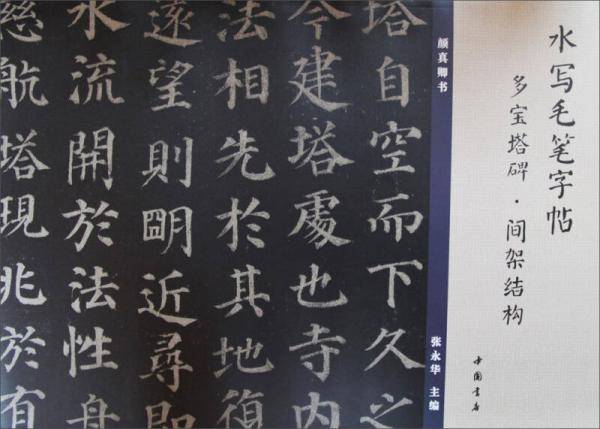 水写毛笔字帖
多宝塔碑·间架结构
中国书店
颜真卿书
张永华 主编
塔自空而下久之
今建塔處也寺内
法相先於其地復
遠望則朙近尋即
水流開於法性舟
慈航塔現兆於有